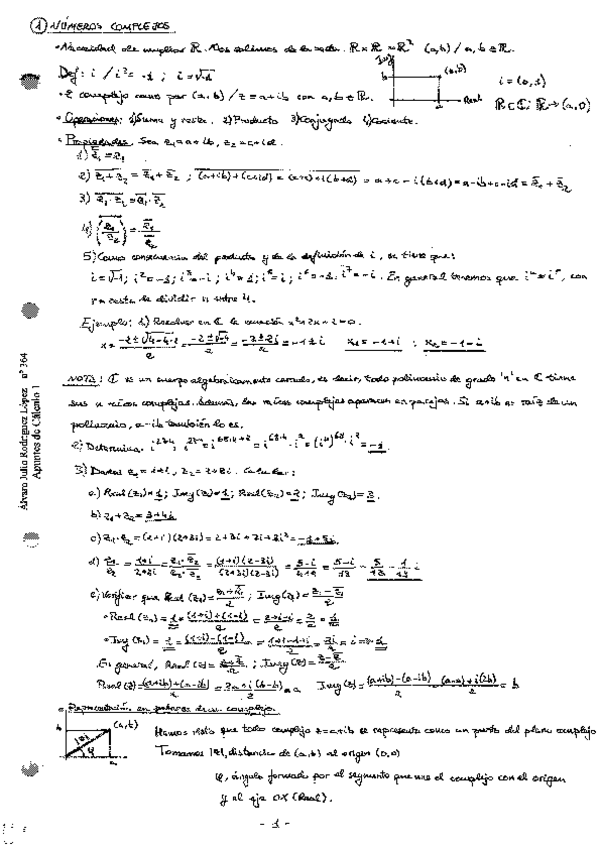 ① NÚMEROS COMPLEJOS
• Necesidad de ampliar ℝ. Nos salimos de la recta. ℝ×ℝ = ℝ² (a,b) / a,b ∈ ℝ.
Def: i / i² = -1 ; i = √-1
Img (a,b) Real
i = (0,1)
• z complejo como par (a,b) / z = a+ib con a,b ∈ ℝ.
ℝ ⊂ ℂ; ℝ → (a,0)
• Operaciones: 1) Suma y resta. 2) Producto 3) Conjugado 4) Cociente.
• Propiedades. Sea z₁ = a+ib, z₂ = c+id.
2) z₁+z₂ = z̄₁+z̄₂ ; (a+ib)+(c+id) = (a+c)+i(b+d) = a+c-i(b+d) = a-ib+c-id = z̄₁+z̄₂
5) Como consecuencia del producto y de la definición de i, se tiene que:
i = √-1; i² = -1; i³ = -i; i⁴ = 1; i⁵ = i; i⁶ = -1; i⁷ = -i. En general tenemos que iⁿ = iʳ, con
r = resto de dividir n entre 4.
Ejemplo: 1) Resolver en ℂ la ecuación x²+2x+2=0.
x = (-2±√4-4·2)/2 = (-2±√-4)/2 = (-2±2i)/2 = -1±i x₁ = -1+i ; x₂ = -1-i
NOTA: ℂ es un cuerpo algebraicamente cerrado, es decir, todo polinomio de grado 'n' en ℂ tiene
sus n raíces complejas. Además, las raíces complejas aparecen en parejas. Si a+ib es raíz de un
polinomio, a-ib también lo es.
2) Determina i²⁷⁴, i²⁷⁴ = i⁶⁸·⁴⁺² = i⁶⁸·⁴ · i² = (i⁴)⁶⁸ · i² = -1.
3) Dados z₁ = 1+i, z₂ = 2+3i. Calcular:
a) Real(z₁) = 1; Img(z₁) = 1; Real(z₂) = 2; Img(z₂) = 3.
b) z₁+z₂ = 3+4i
c) z₁·z₂ = (1+i)(2+3i) = 2+3i+2i+3i² = -1+5i.
d) z₁/z₂ = (1+i)/(2+3i) = z₁·z̄₂/z₂·z̄₂ = (1+i)(2-3i)/(2+3i)(2-3i) = (5-i)/(4+9) = (5-i)/13 = 5/13 - 1/13 i
e) Verificar que Real(z₁) = (z₁+z̄₁)/2 ; Img(z₁) = (z₁-z̄₁)/2
• Real(z₁) = 1 = ((1+i)+(1-i))/2 = (2+i-i)/2 = 2/2 = 1
En general, Real(z) = (z+z̄)/2 ; Img(z) = (z-z̄)/2
• Representación en polares de un complejo.
b (a,b) |z| φ a
Hemos visto que todo complejo z=a+ib se representa como un punto del plano complejo
Tomamos |z|, distancia de (a,b) al origen (0,0)
φ, ángulo formado por el segmento que une el complejo con el origen
y el eje OX (Real).
- 1 -
Álvaro Julio Rodríguez López nº 364
Apuntes de Cálculo 1